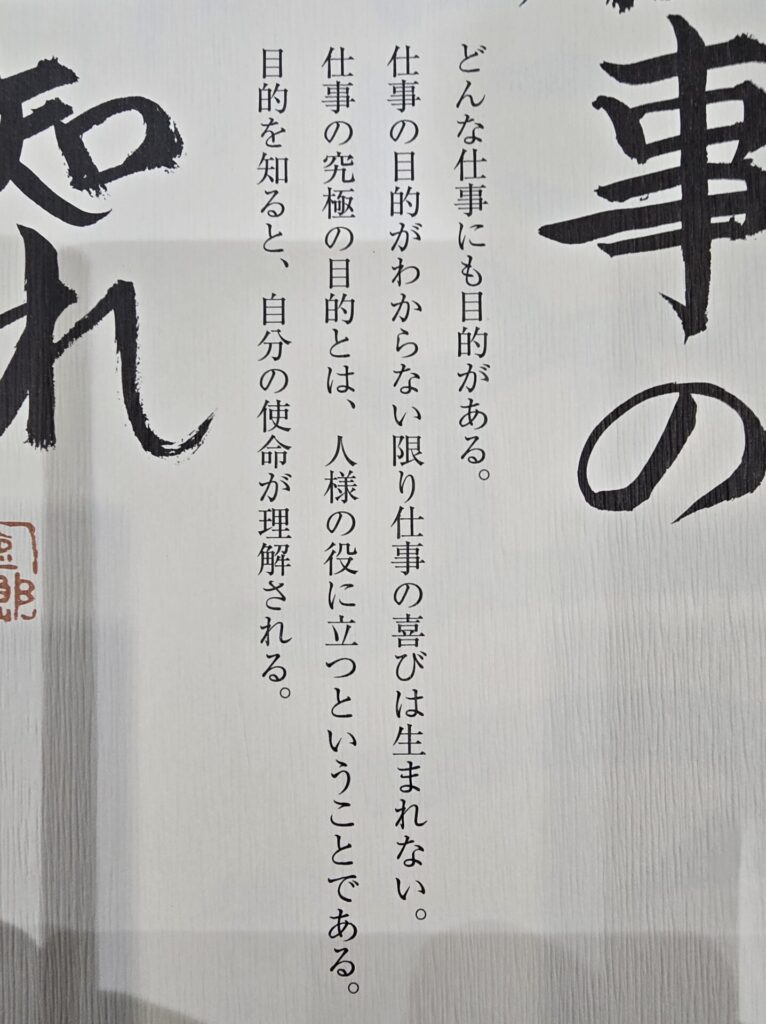 事の
どんな仕事にも目的がある。
仕事の目的がわからない限り仕事の喜びは生まれない。
仕事の究極の目的とは、人様の役に立つということである。
目的を知ると、自分の使命が理解される。
知れ
郎